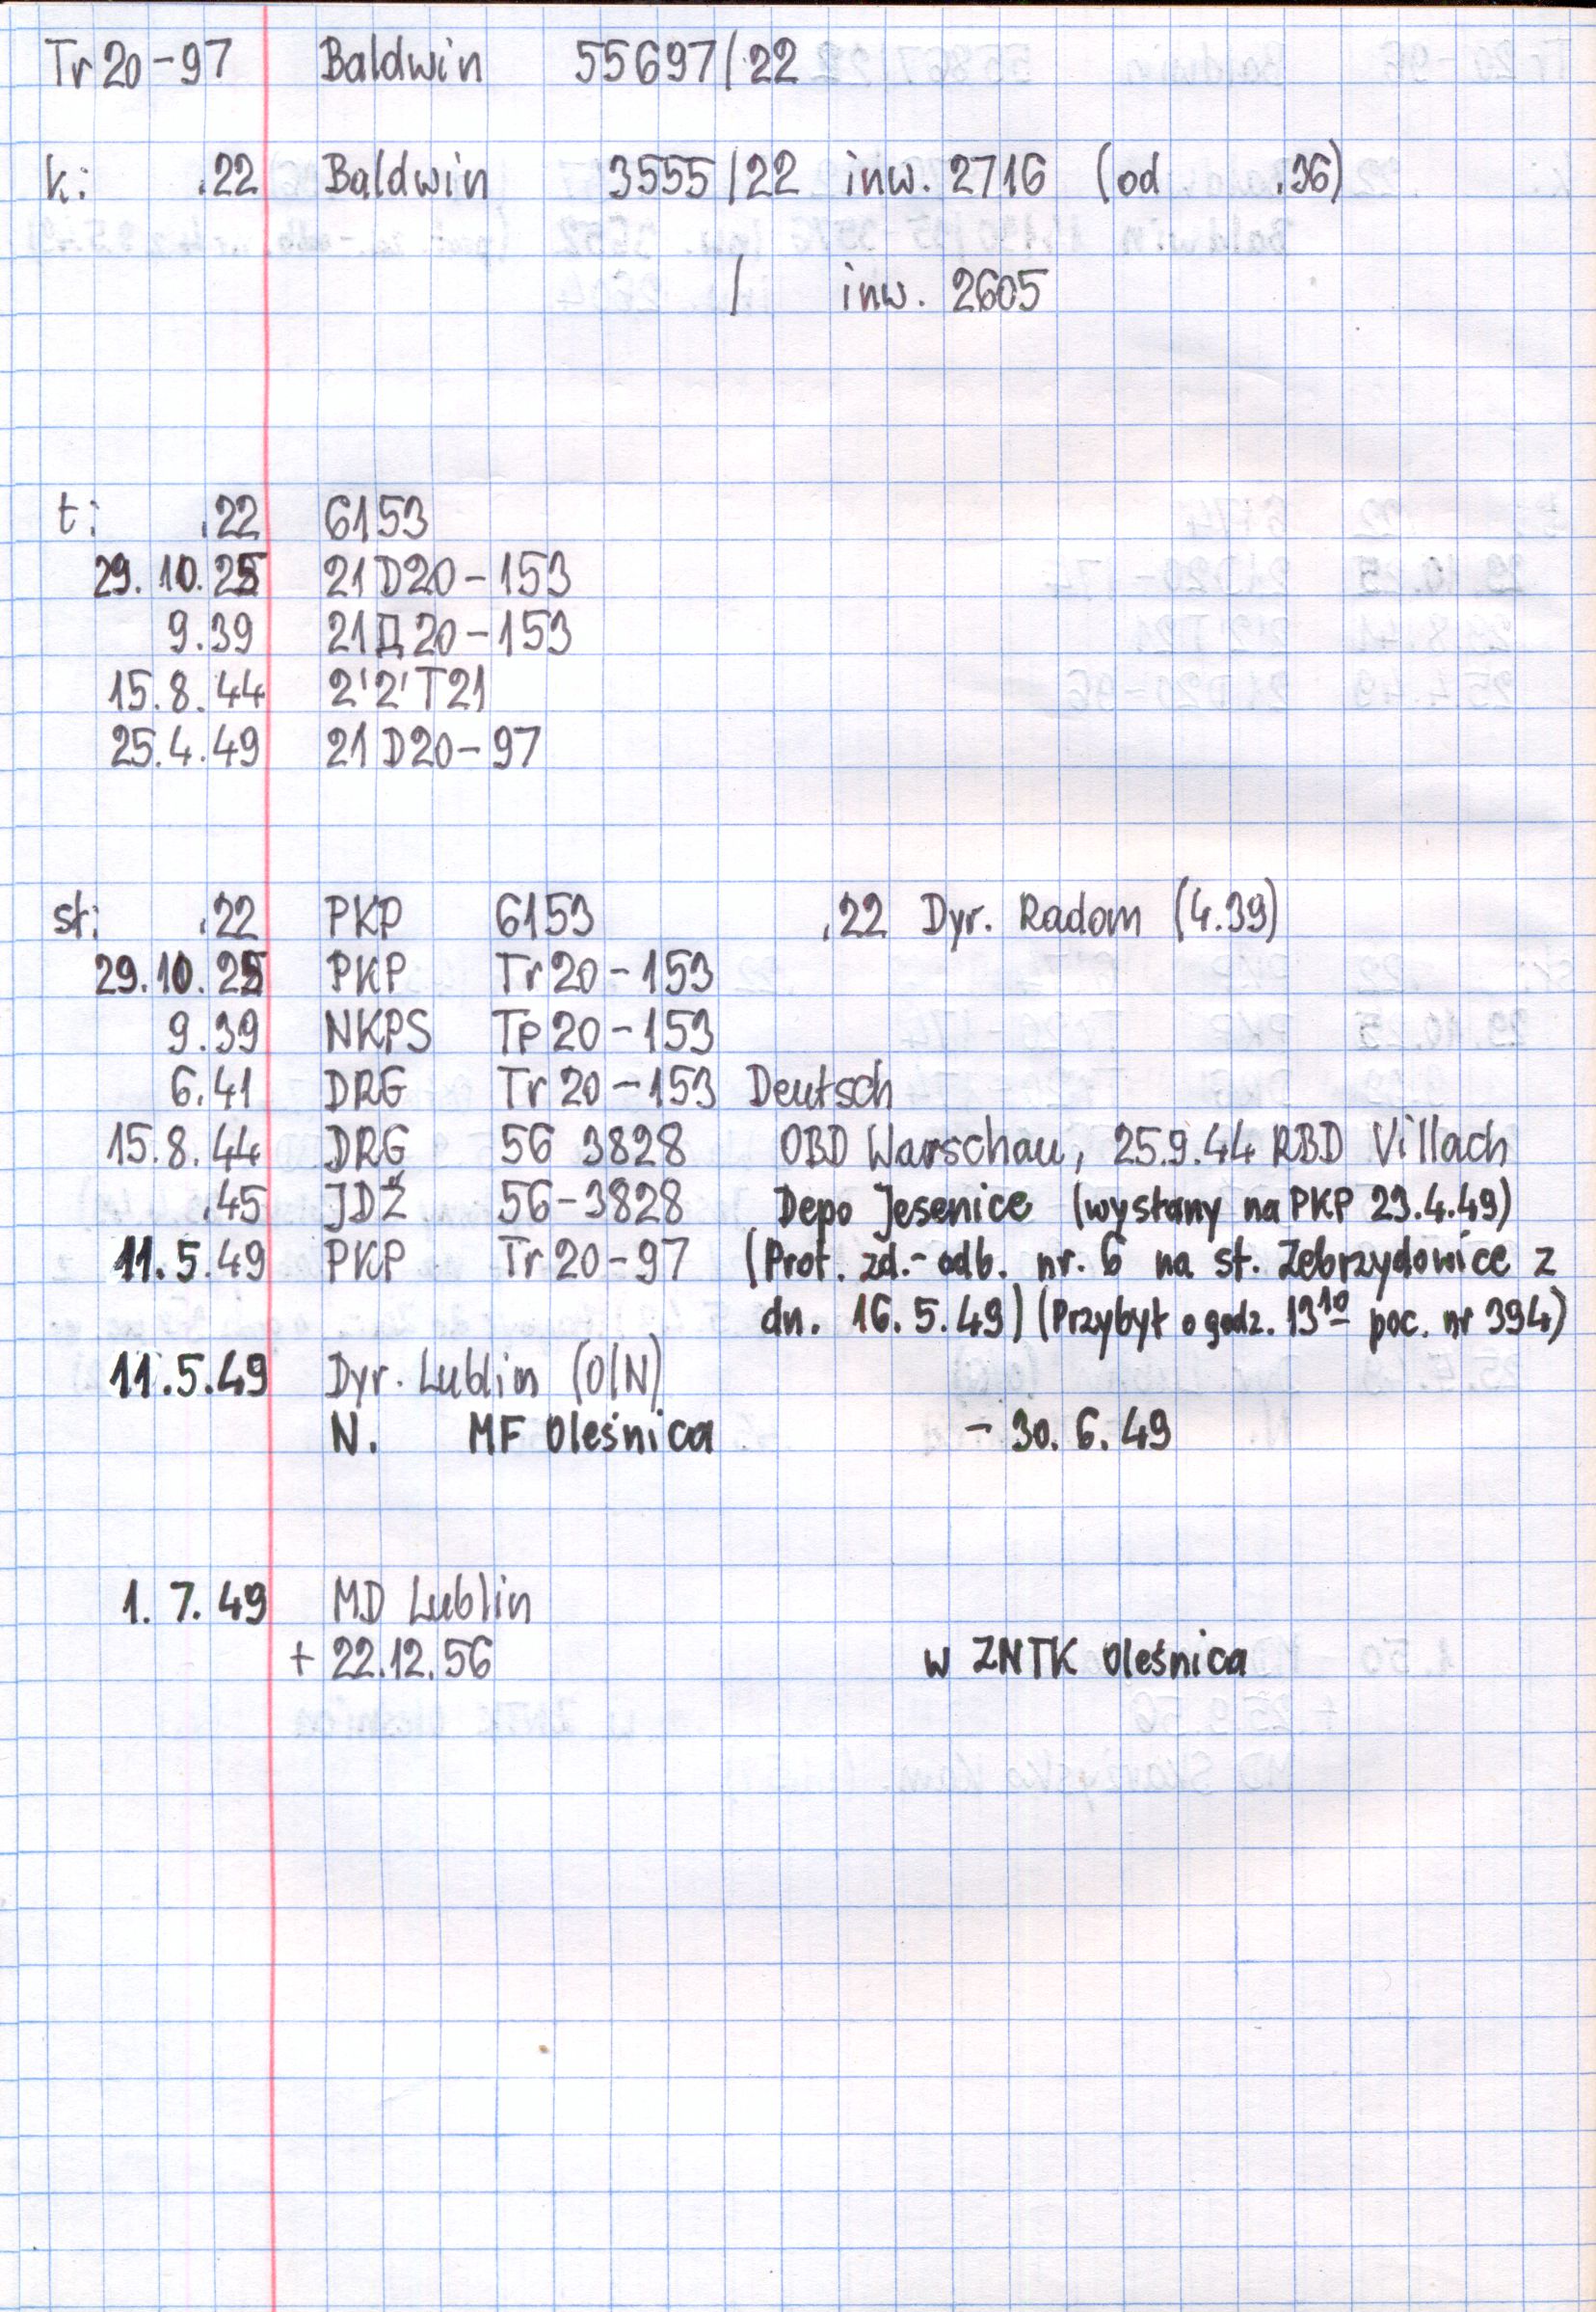 Tr 20-97 Baldwin 55697/22
k: .22 Baldwin 3555/22 inw. 2716 (od .36)
/ inw. 2605
t: .22 6153
29.10.25 21D20-153
9.39 21Д20-153
15.8.44 2'2'T21
25.4.49 21D20-97
st: .22 PKP 6153 .22 Dyr. Radom (4.39)
29.10.25 PKP Tr20-153
9.39 NKPS Tp20-153
6.41 DRG Tr20-153 Deutsch
15.8.44 DRG 56 3828 OBD Warschau, 25.9.44 RBD Villach
.45 JDŽ 56-3828 Depo Jesenice (wysłany na PKP 29.4.49)
11.5.49 PKP Tr20-97 (Prot. zd.-odb. nr. 6 na st. Zebrzydowice z
dn. 16.5.49) (Przybył o godz. 13¹⁰ poc. nr 394)
11.5.49 Dyr. Lublin (OlN)
N. MF Oleśnica - 30.6.49
1.7.49 MD Lublin
+ 22.12.56 w ZNTK Oleśnica